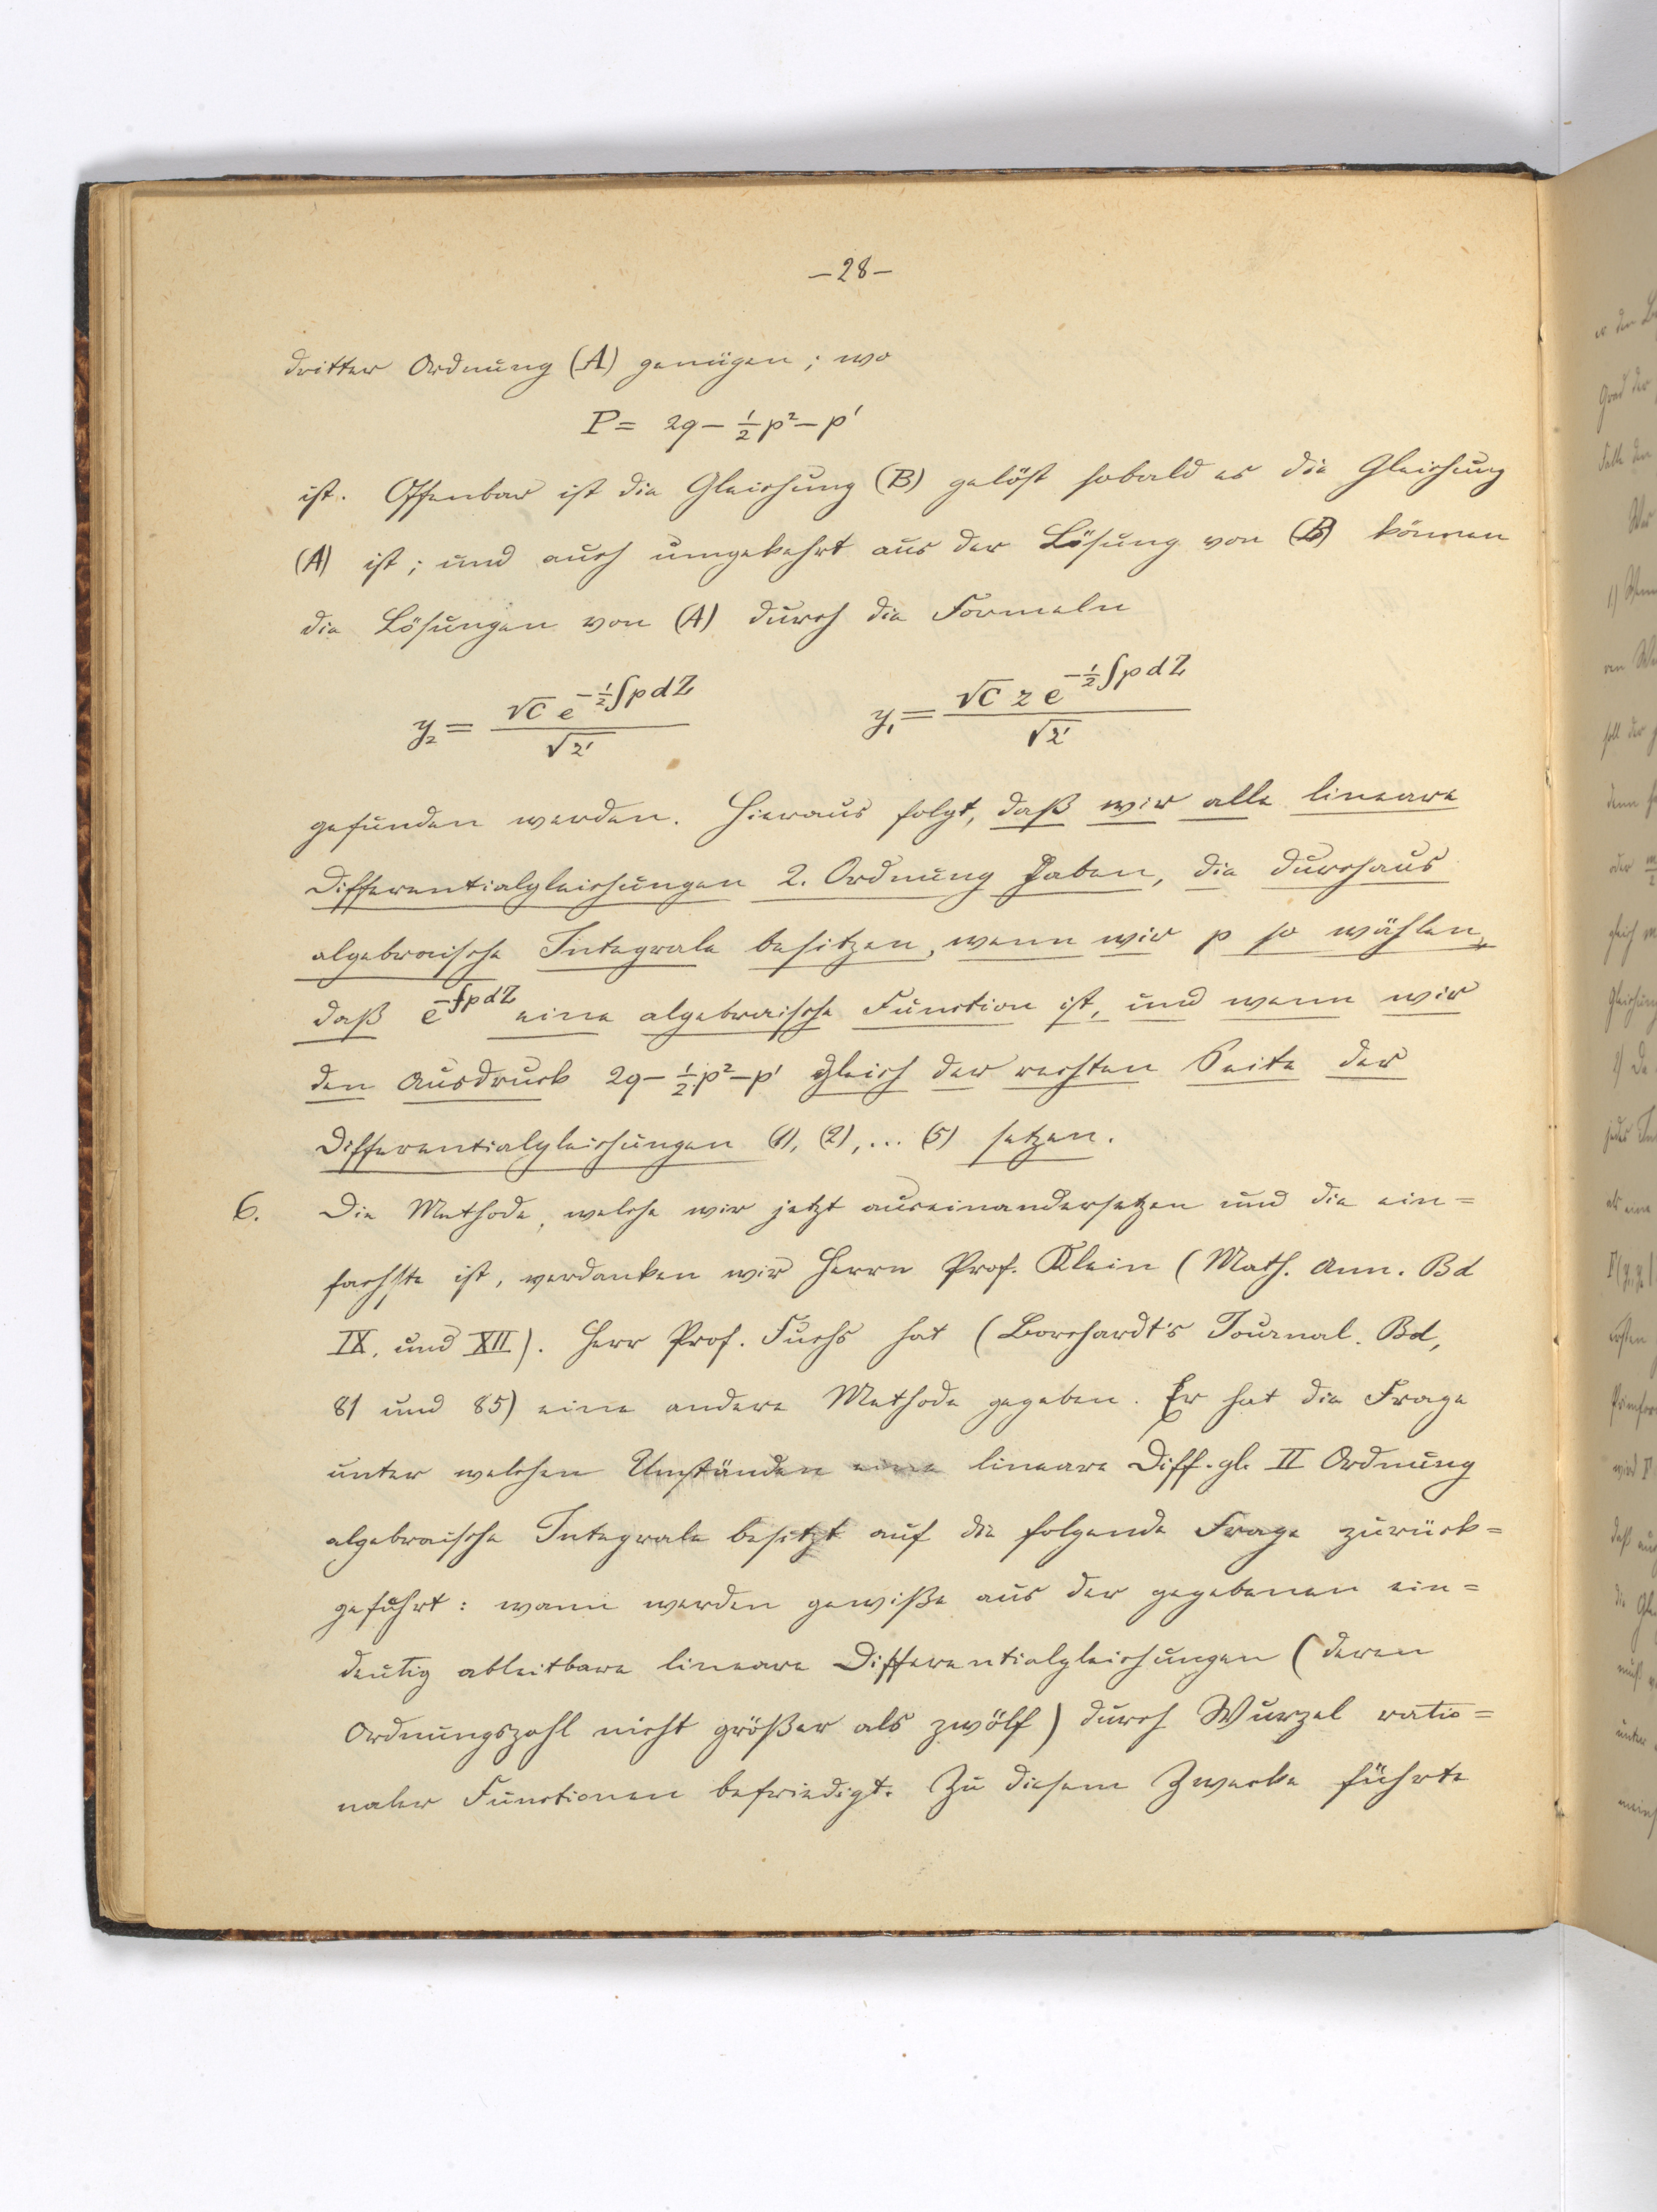 —28—
dritter Ordnung (A) genügen; wo
P = 2q − ½p² − p′
ist. Offenbar ist die Gleichung (B) gelöst sobald es die Gleichung
(A) ist; und auch umgekehrt aus der Lösung von (B) können
die Lösungen von (A) durch die Formeln
y₂ = √C e^{−½∫p dZ} / √z′   y₁ = √C z e^{−½∫p dZ} / √z′
gefunden werden. Hieraus folgt, daß wir alle lineare
Differentialgleichungen 2. Ordnung haben, die durchaus
algebraische Integrale besitzen, wenn wir p so wählen,
daß e^{−∫p dZ} eine algebraische Function ist, und wenn wir
den Ausdruck 2q − ½p² − p′ gleich der rechten Seite der
Differentialgleichungen (1), (2), ... (5) setzen.
6. Die Methode, welche wir jetzt auseinandersetzen und die ein=
fachste ist, verdanken wir Herrn Prof. Klein (Math. Ann. Bd
IX. und XII). Herr Prof. Fuchs hat (Borchardt's Journal. Bd,
81 und 85) eine andere Methode gegeben. Er hat die Frage
unter welchen Umständen eine lineare Diff. gl. II Ordnung
algebraische Integrale besitzt auf die folgende Frage zurück=
geführt: wann werden gewiße aus der gegebenen ein=
deutig ableitbare lineare Differentialgleichungen (deren
Ordnungszahl nicht größer als zwölf) durch Wurzel ratio=
naler Functionen befriedigt. Zu diesem Zwecke führte